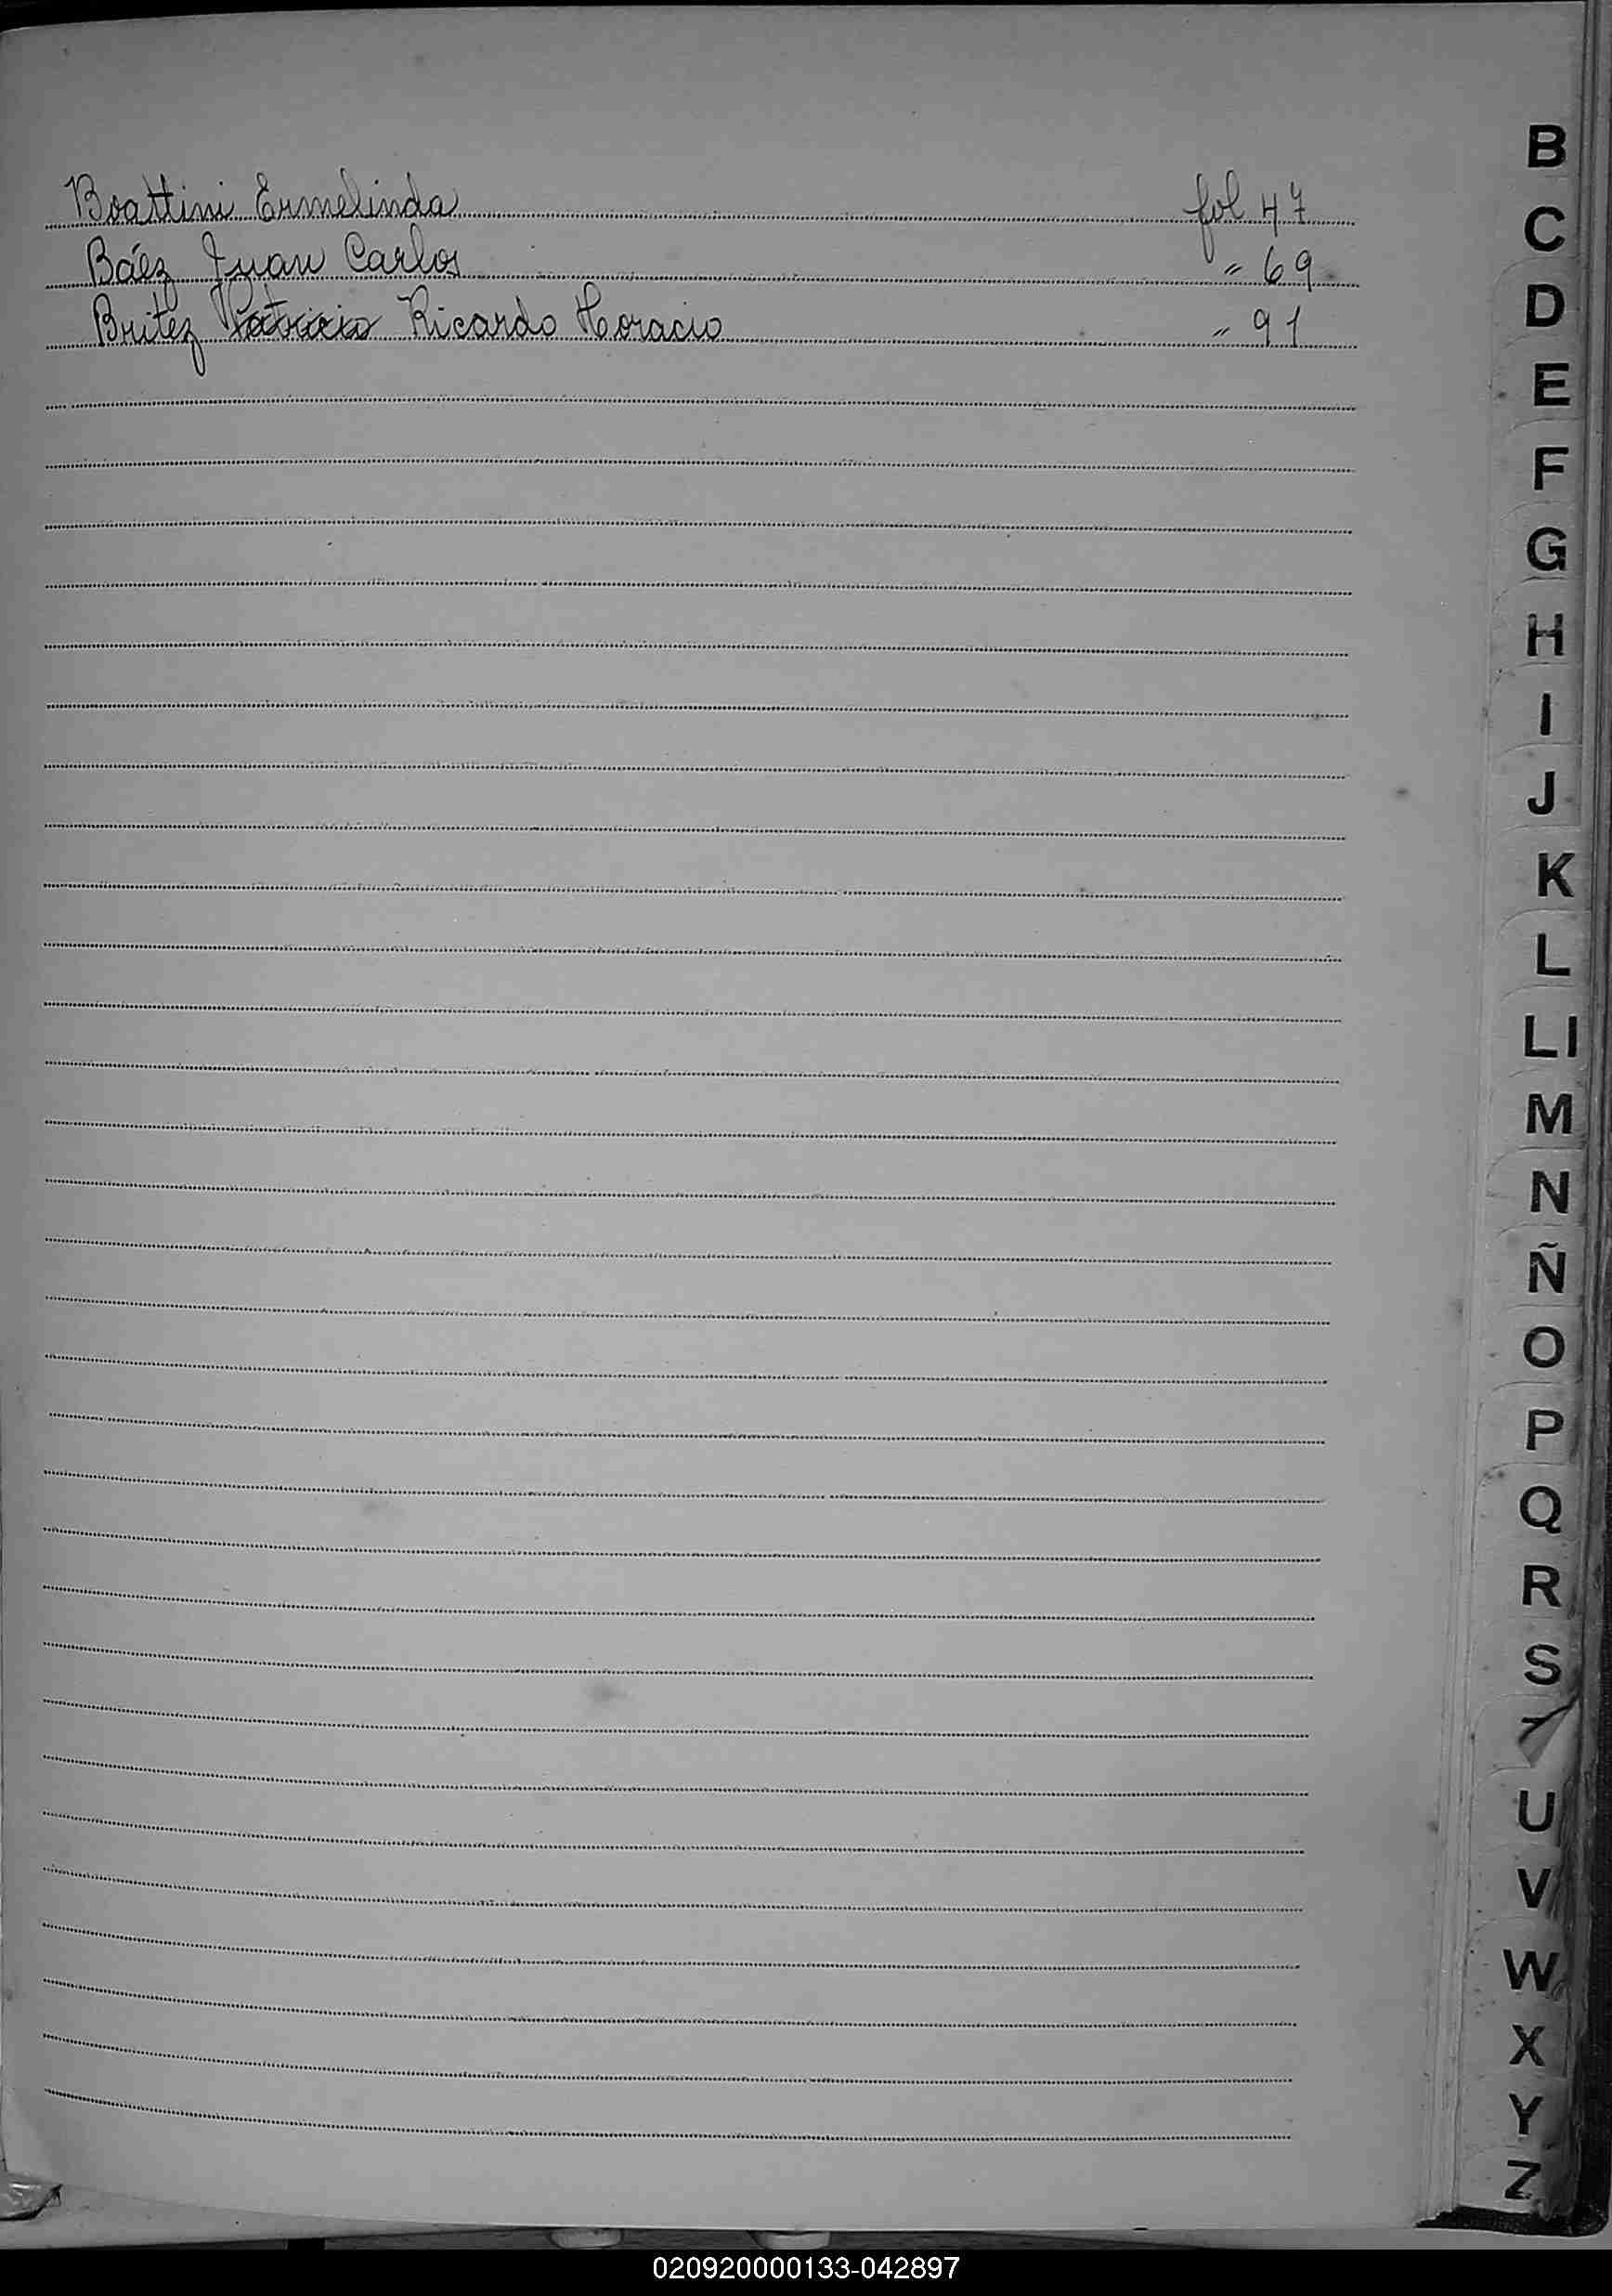 Boattini Ermelinda fol 47
Báez Juan Carlos " 69
Britez Patricio Ricardo Horacio " 91
B
C
D
E
F
G
H
I
J
K
L
Ll
M
N
Ñ
O
P
Q
R
S
T
U
V
W
X
Y
Z
020920000133-042897